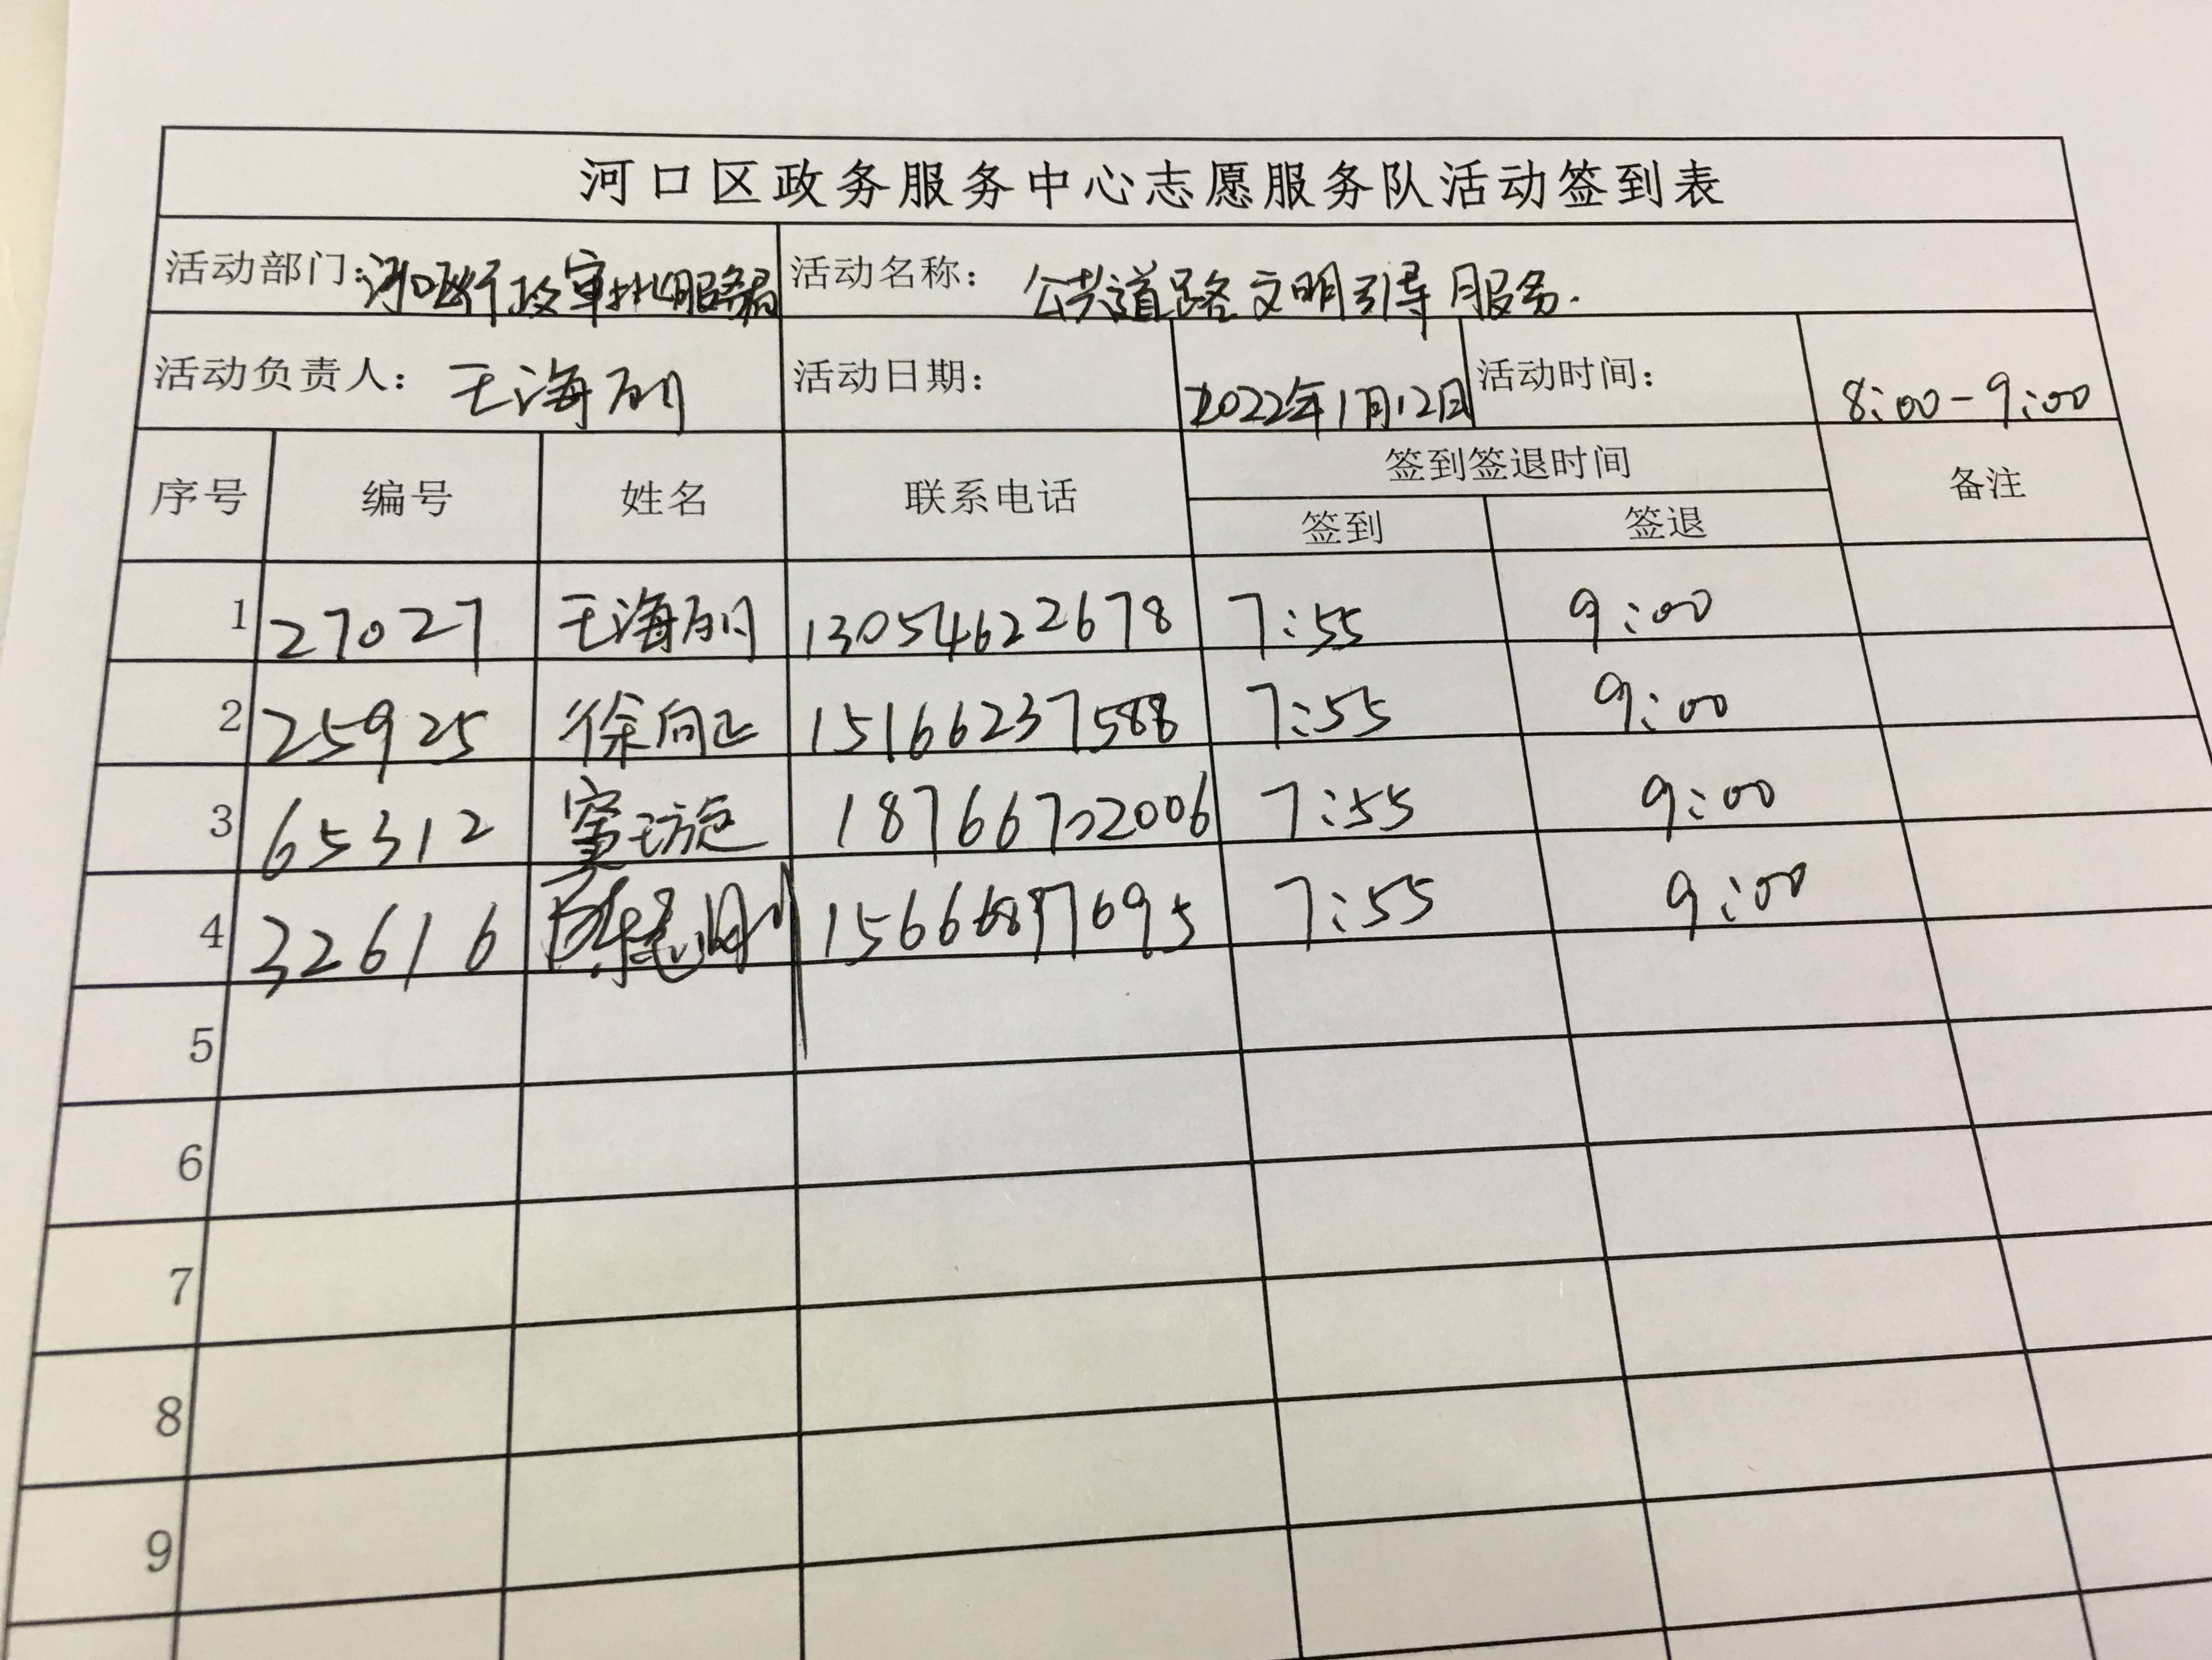 河口区政务服务中心志愿服务队活动签到表
活动部门：河口区行政审批服务局 活动名称： 公共道路文明引导服务.
活动负责人： 王海丽 活动日期： 2022年1月12日 活动时间： 8:00-9:00
序号 编号 姓名 联系电话 签到签退时间 备注
签到 签退
1 27027 王海丽 13054622678 7:55 9:00
2 25925 徐向正 15166237588 7:55 9:00
3 65312 窦璇 18766702006 7:55 9:00
4 32616 15666897695 7:55 9:00
5
6
7
8
9